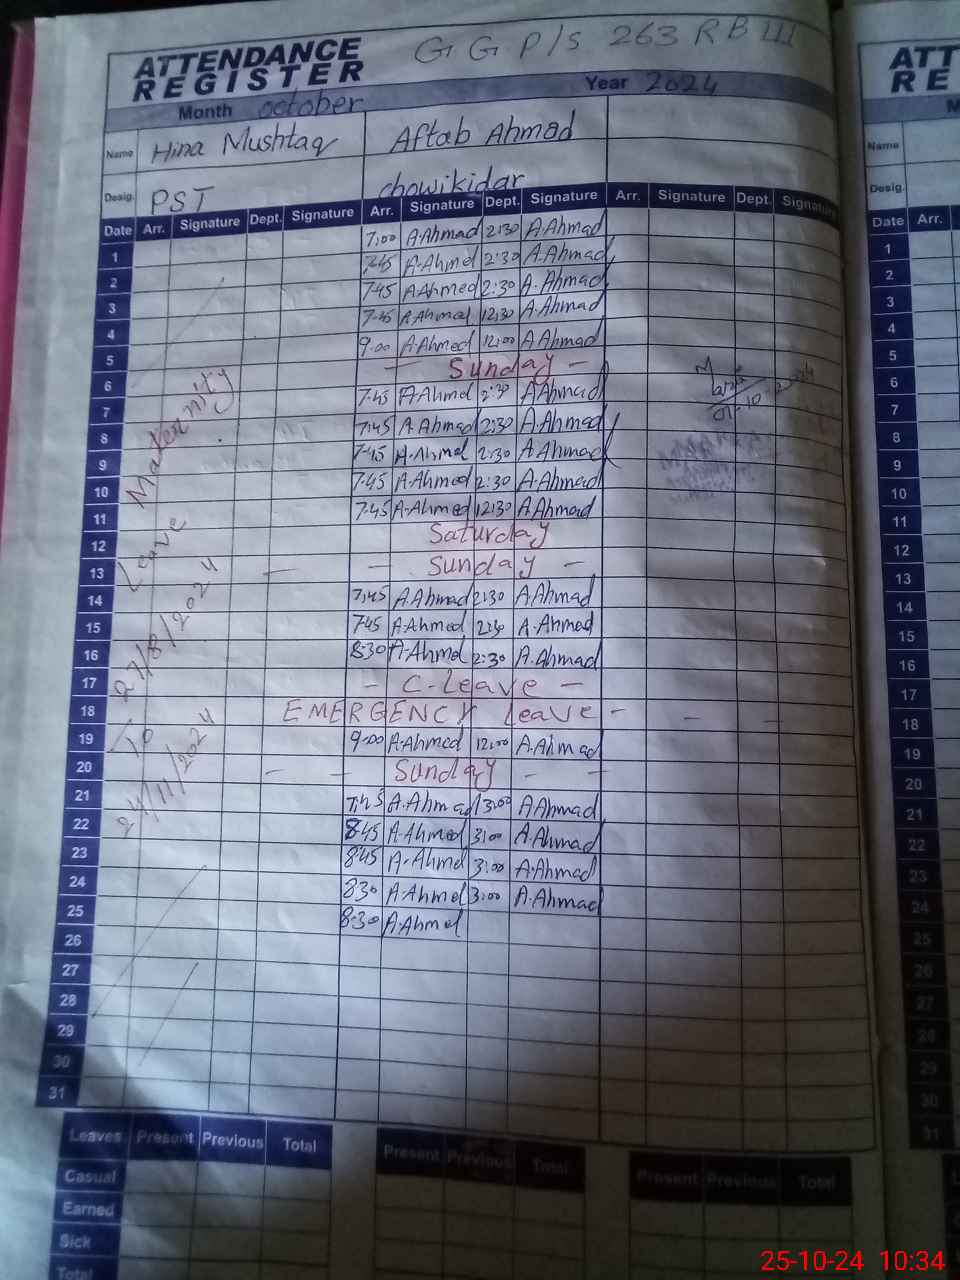 ATTENDANCE REGISTER G G P/S 263 RB III
Month october Year 2024
Name Hina Mushtaq Aftab Ahmad
Desig. PST chowikidar
Date Arr. Signature Dept. Signature Arr. Signature Dept. Signature Arr. Signature Dept. Signature
1 7:00 A.Ahmad 2:30 A.Ahmad
2 7:45 A.Ahmed 2:30 A.Ahmad
3 7:45 A.Ahmed 2:30 A.Ahmad
4 7:45 A.Ahmad 12:30 A.Ahmad
5 9:00 A.Ahmed 12:00 A.Ahmad
6 - Sunday -
7 7:45 A.Ahmed 2:30 A.Ahmad
8 7:45 A.Ahmad 2:30 A.Ahmad
9 7:45 A.Ahmed 2:30 A.Ahmad
10 7:45 A.Ahmed 2:30 A.Ahmad
11 7:45 A.Ahmed 12:30 A.Ahmad
12 Saturday
13 - - Sunday -
14 7:45 A.Ahmad 2:30 A.Ahmad
15 7:45 A.Ahmed 2:30 A.Ahmad
16 8:30 A.Ahmed 2:30 A.Ahmad
17 - C-Leave -
18 EMERGENCY Leave - - -
19 9:00 A.Ahmed 12:00 A.Ahmad
20 - - Sunday - -
21 7:45 A.Ahmad 3:00 A.Ahmad
22 8:45 A.Ahmed 3:00 A.Ahmad
23 8:45 A.Ahmed 3:00 A.Ahmad
24 8:30 A.Ahmed 3:00 A.Ahmad
25 8:30 A.Ahmed
26
27
28
29
30
31
Maternity
Leave
27/8/2024
To
24/11/2024
Leaves Present Previous Total Present Previous Total Present Previous Total
Casual
Earned
Sick
Total
ATT
RE
Name
Desig.
Date Arr.
1
2
3
4
5
6
7
8
9
10
11
12
13
14
15
16
17
18
19
20
21
22
23
24
25
26
27
28
29
30
31
25-10-24 10:34